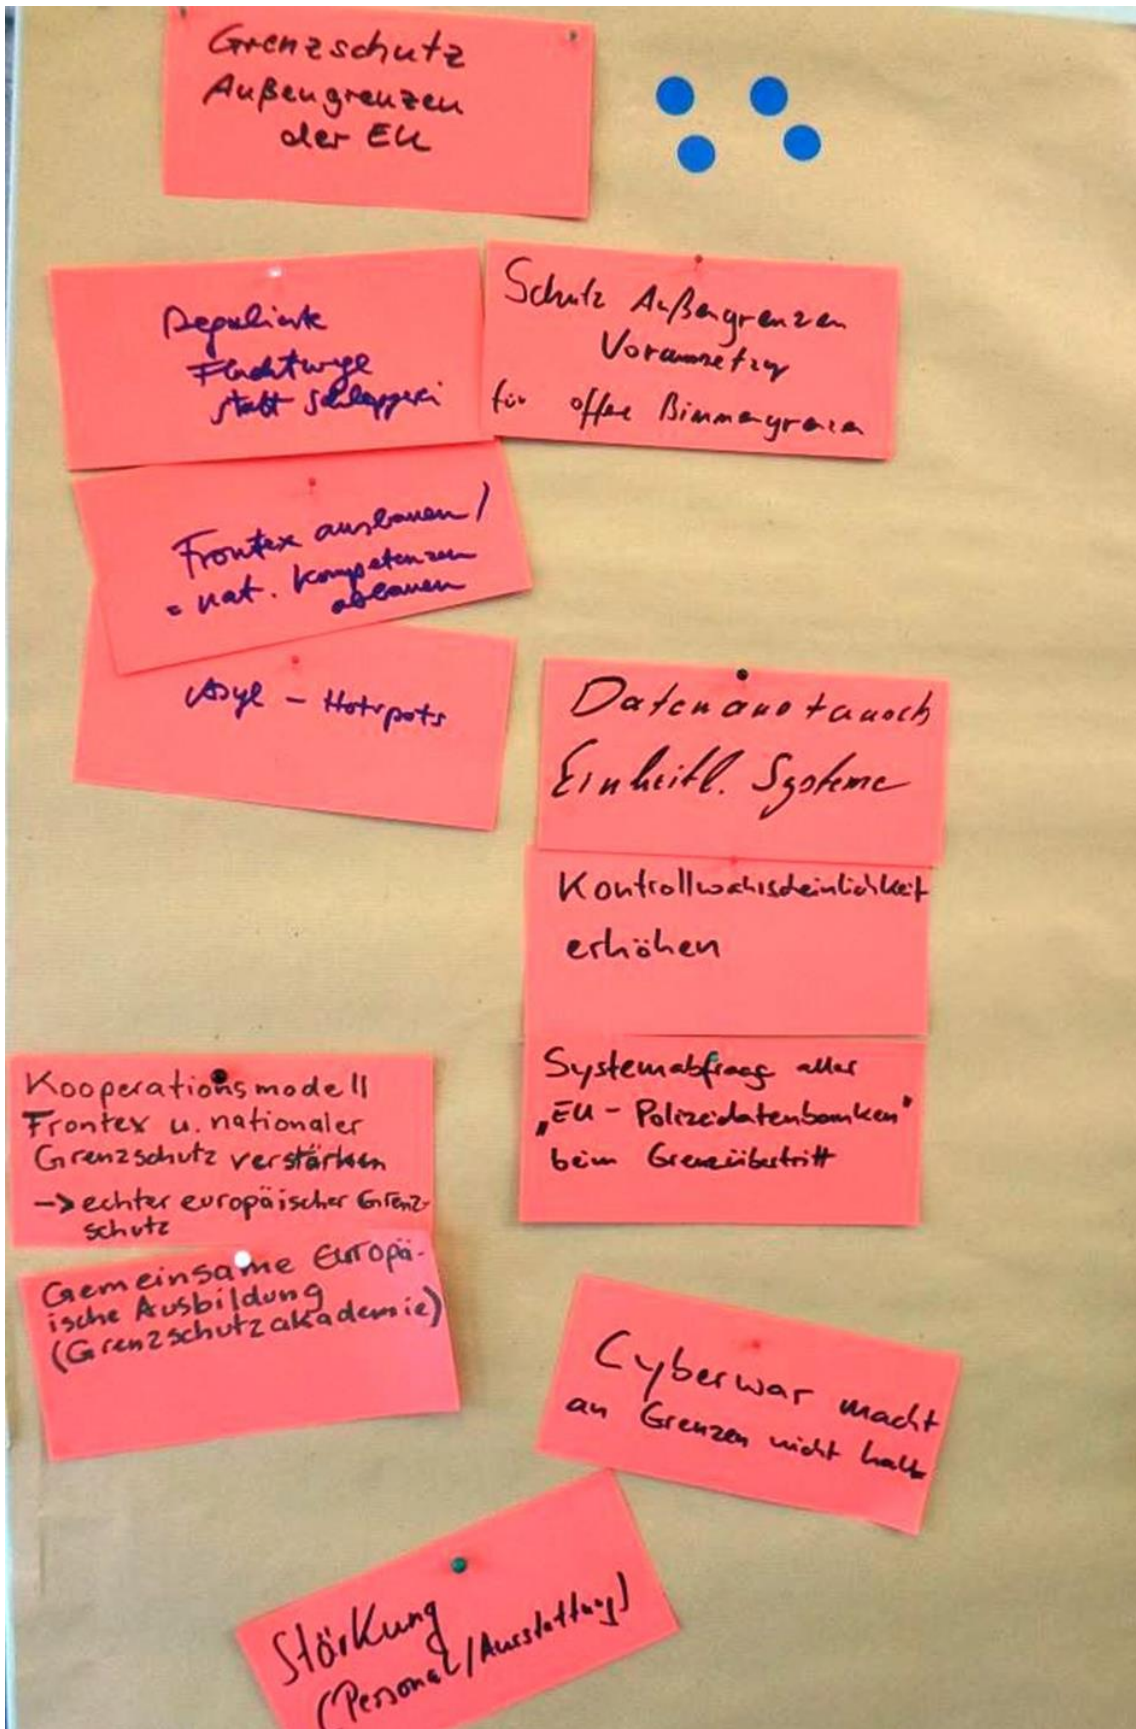 Grenzschutz
Außengrenzen
der EU
Regulierte
Fluchtwege
statt Schlepperei
Schutz Außengrenzen
Voraussetzung
für offene Binnengrenzen
Frontex ausbauen /
= nat. Kompetenzen
abbauen
Asyl – Hotspots
Datenaustausch
Einheitl. Systeme
Kontrollwahrscheinlichkeit
erhöhen
Systemabfrage aller
„EU - Polizeidatenbanken"
beim Grenzübertritt
Kooperationsmodell
Frontex u. nationaler
Grenzschutz verstärken
–> echter europäischer Grenz-
schutz
Gemeinsame Europä-
ische Ausbildung
(Grenzschutzakademie)
Cyberwar macht
an Grenzen nicht halt
Stärkung
(Personal/Ausstattung)